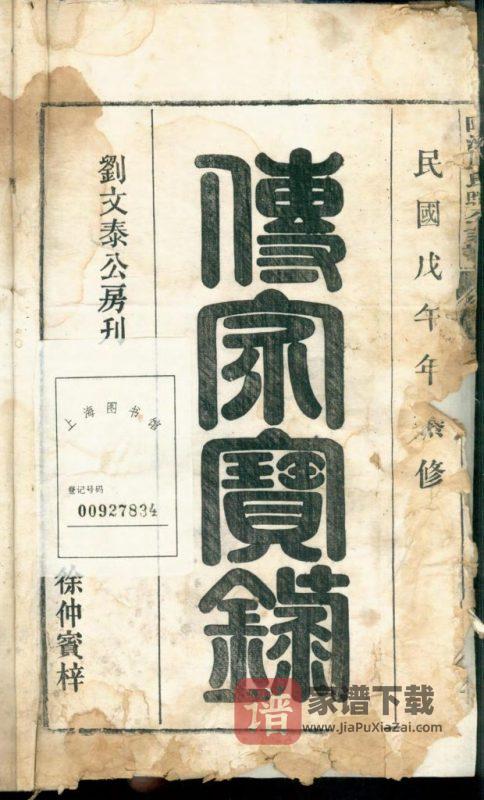 民國戊午年
修
傳家寶錄
劉文泰公房刊
徐仲賓梓
上海图书馆
登记号码
00927834
谱
家谱下载
www.JiaPuXiaZai.com